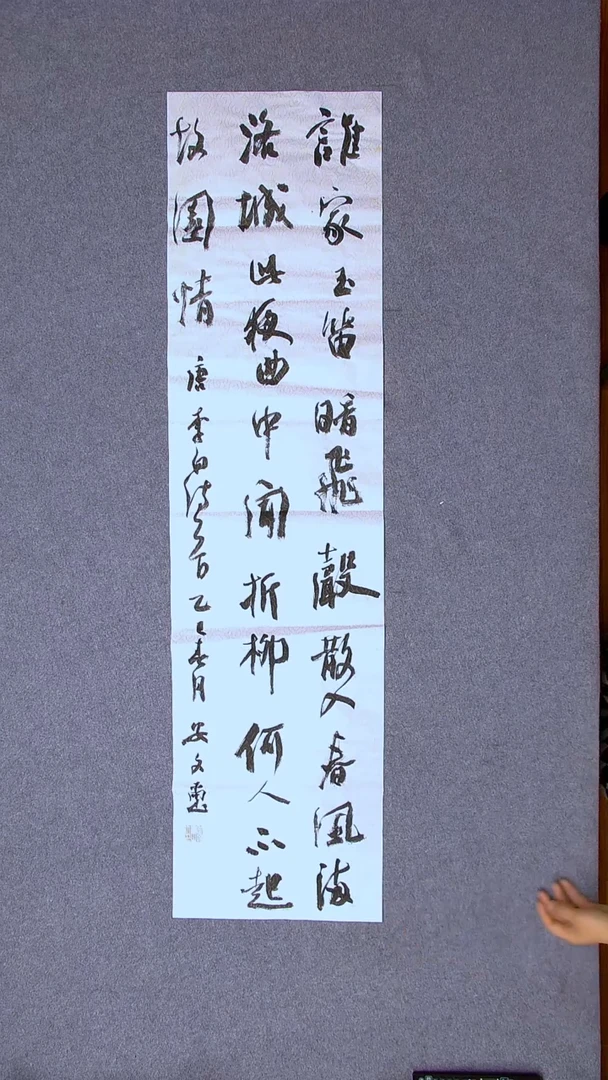 誰家玉笛暗飛聲散入春風滿
洛城此夜曲中聞折柳何人不起
故園情 唐李白诗一首 乙巳春月 安文